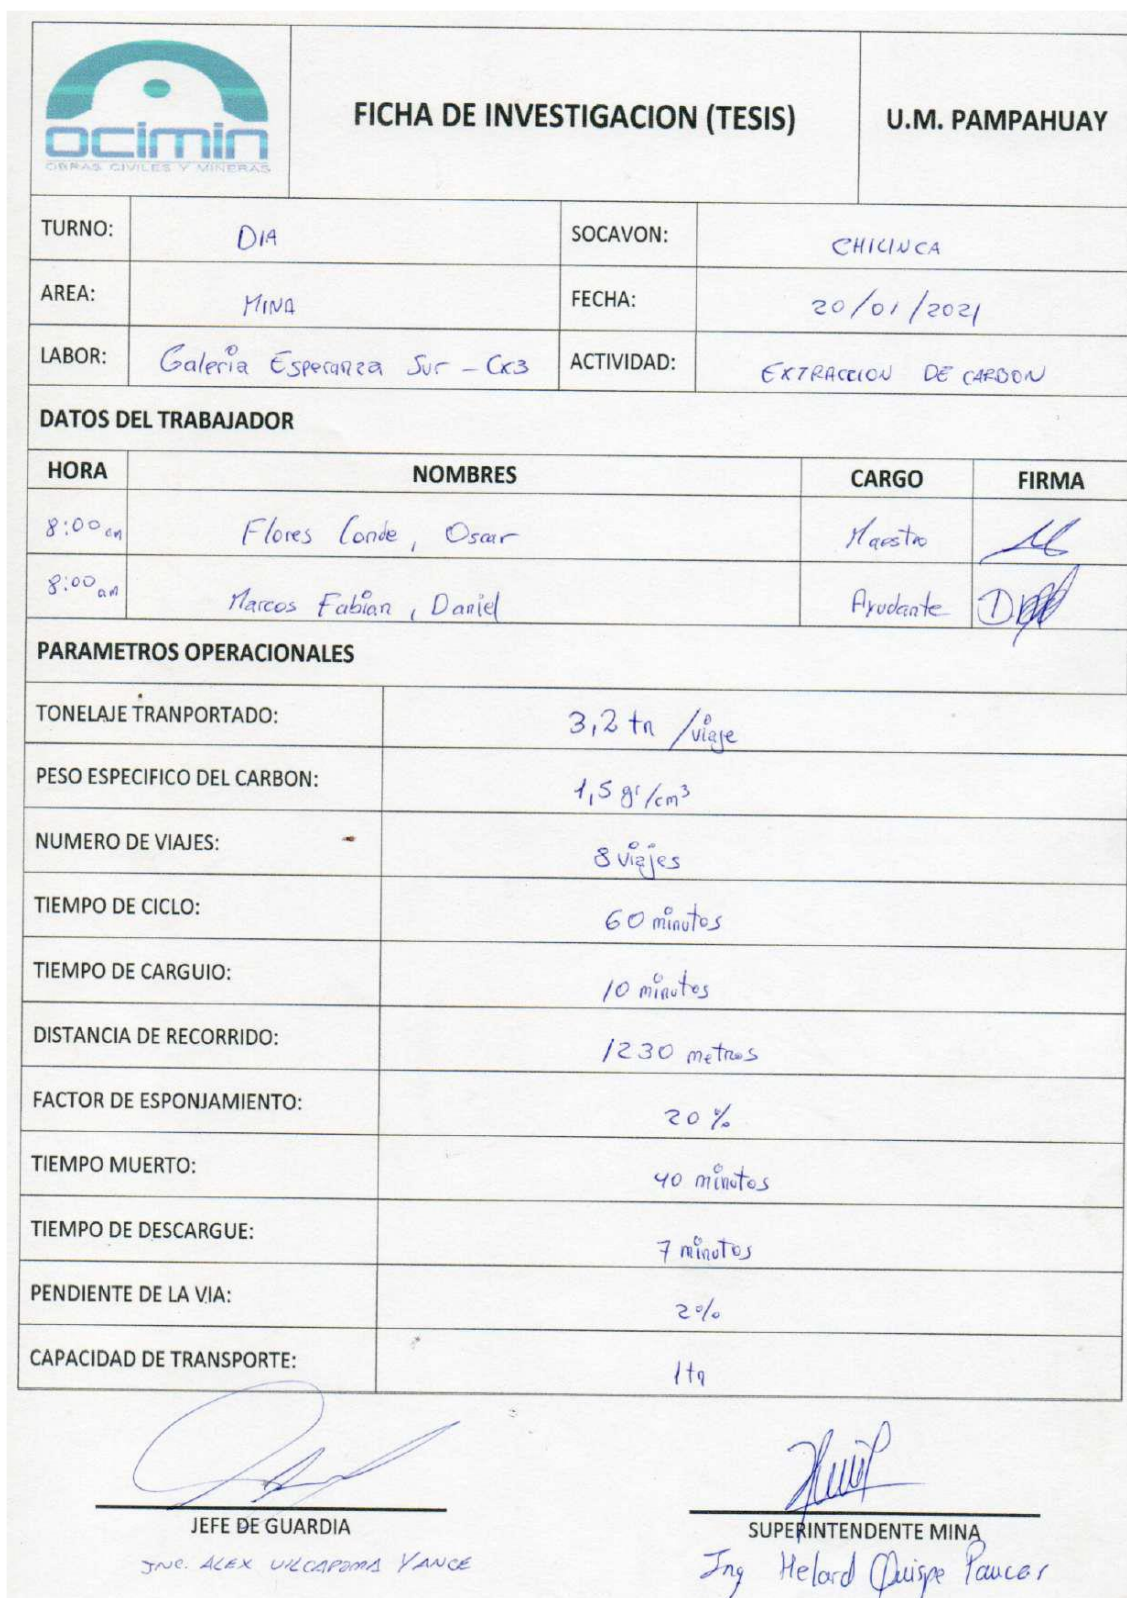 ocimin
OBRAS CIVILES Y MINERAS
FICHA DE INVESTIGACION (TESIS)
U.M. PAMPAHUAY
TURNO: DIA SOCAVON: CHILINCA
AREA: MINA FECHA: 20/01/2021
LABOR: Galeria Esperanza Sur - Cx3 ACTIVIDAD: EXTRACCION DE CARBON
DATOS DEL TRABAJADOR
HORA NOMBRES CARGO FIRMA
8:00 am Flores Conde, Oscar Maestro
8:00 am Marcos Fabian, Daniel Ayudante
PARAMETROS OPERACIONALES
TONELAJE TRANPORTADO: 3,2 tn /viaje
PESO ESPECIFICO DEL CARBON: 1,5 gr/cm³
NUMERO DE VIAJES: 8 viajes
TIEMPO DE CICLO: 60 minutos
TIEMPO DE CARGUIO: 10 minutos
DISTANCIA DE RECORRIDO: 1230 metros
FACTOR DE ESPONJAMIENTO: 20 %
TIEMPO MUERTO: 40 minutos
TIEMPO DE DESCARGUE: 7 minutos
PENDIENTE DE LA VIA: 2%
CAPACIDAD DE TRANSPORTE: 1 tn
JEFE DE GUARDIA SUPERINTENDENTE MINA
ING. ALEX VILCAPOMA YANCE Ing Helard Quispe Paucar